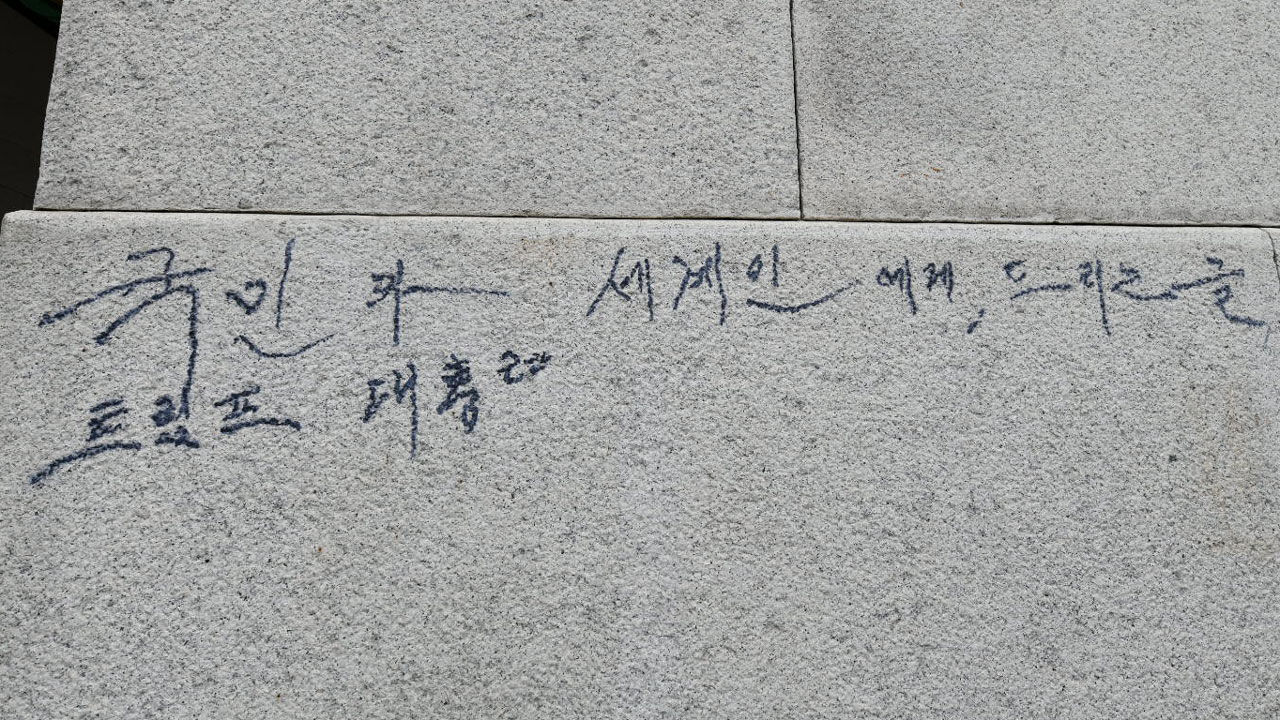 국민과 세계인에게, 드리는 글
트럼프